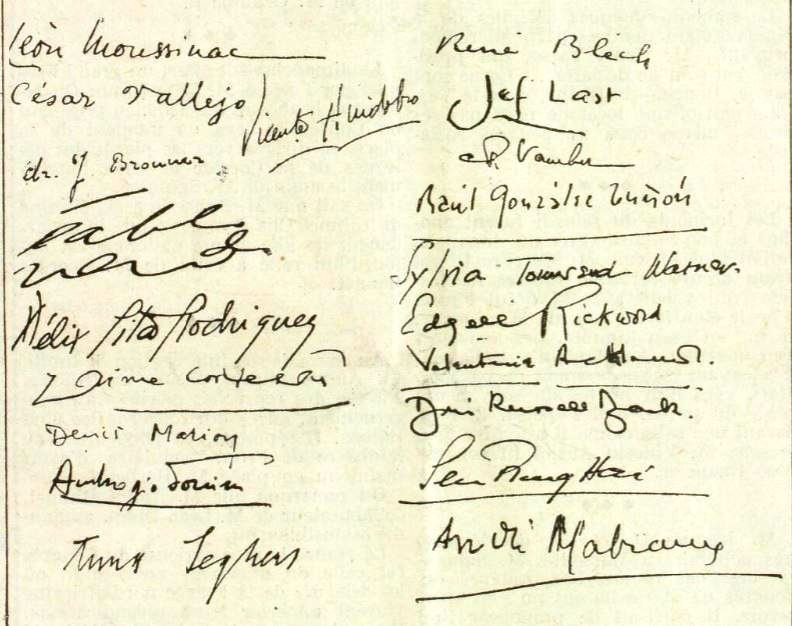 León Moussinac
César Vallejo
Vicente Huidobro
dr. J. Brouwer
Pablo
Neruda
Félix Pita Rodriguez
Jaime Cortesão
Denis Marion
Ambrogio Donini
Anna Seghers
René Blech
Jef Last
Raúl González Tuñón
Sylvia Townsend Warner.
Edgell Rickword
Valentine Ackland.
André Malraux